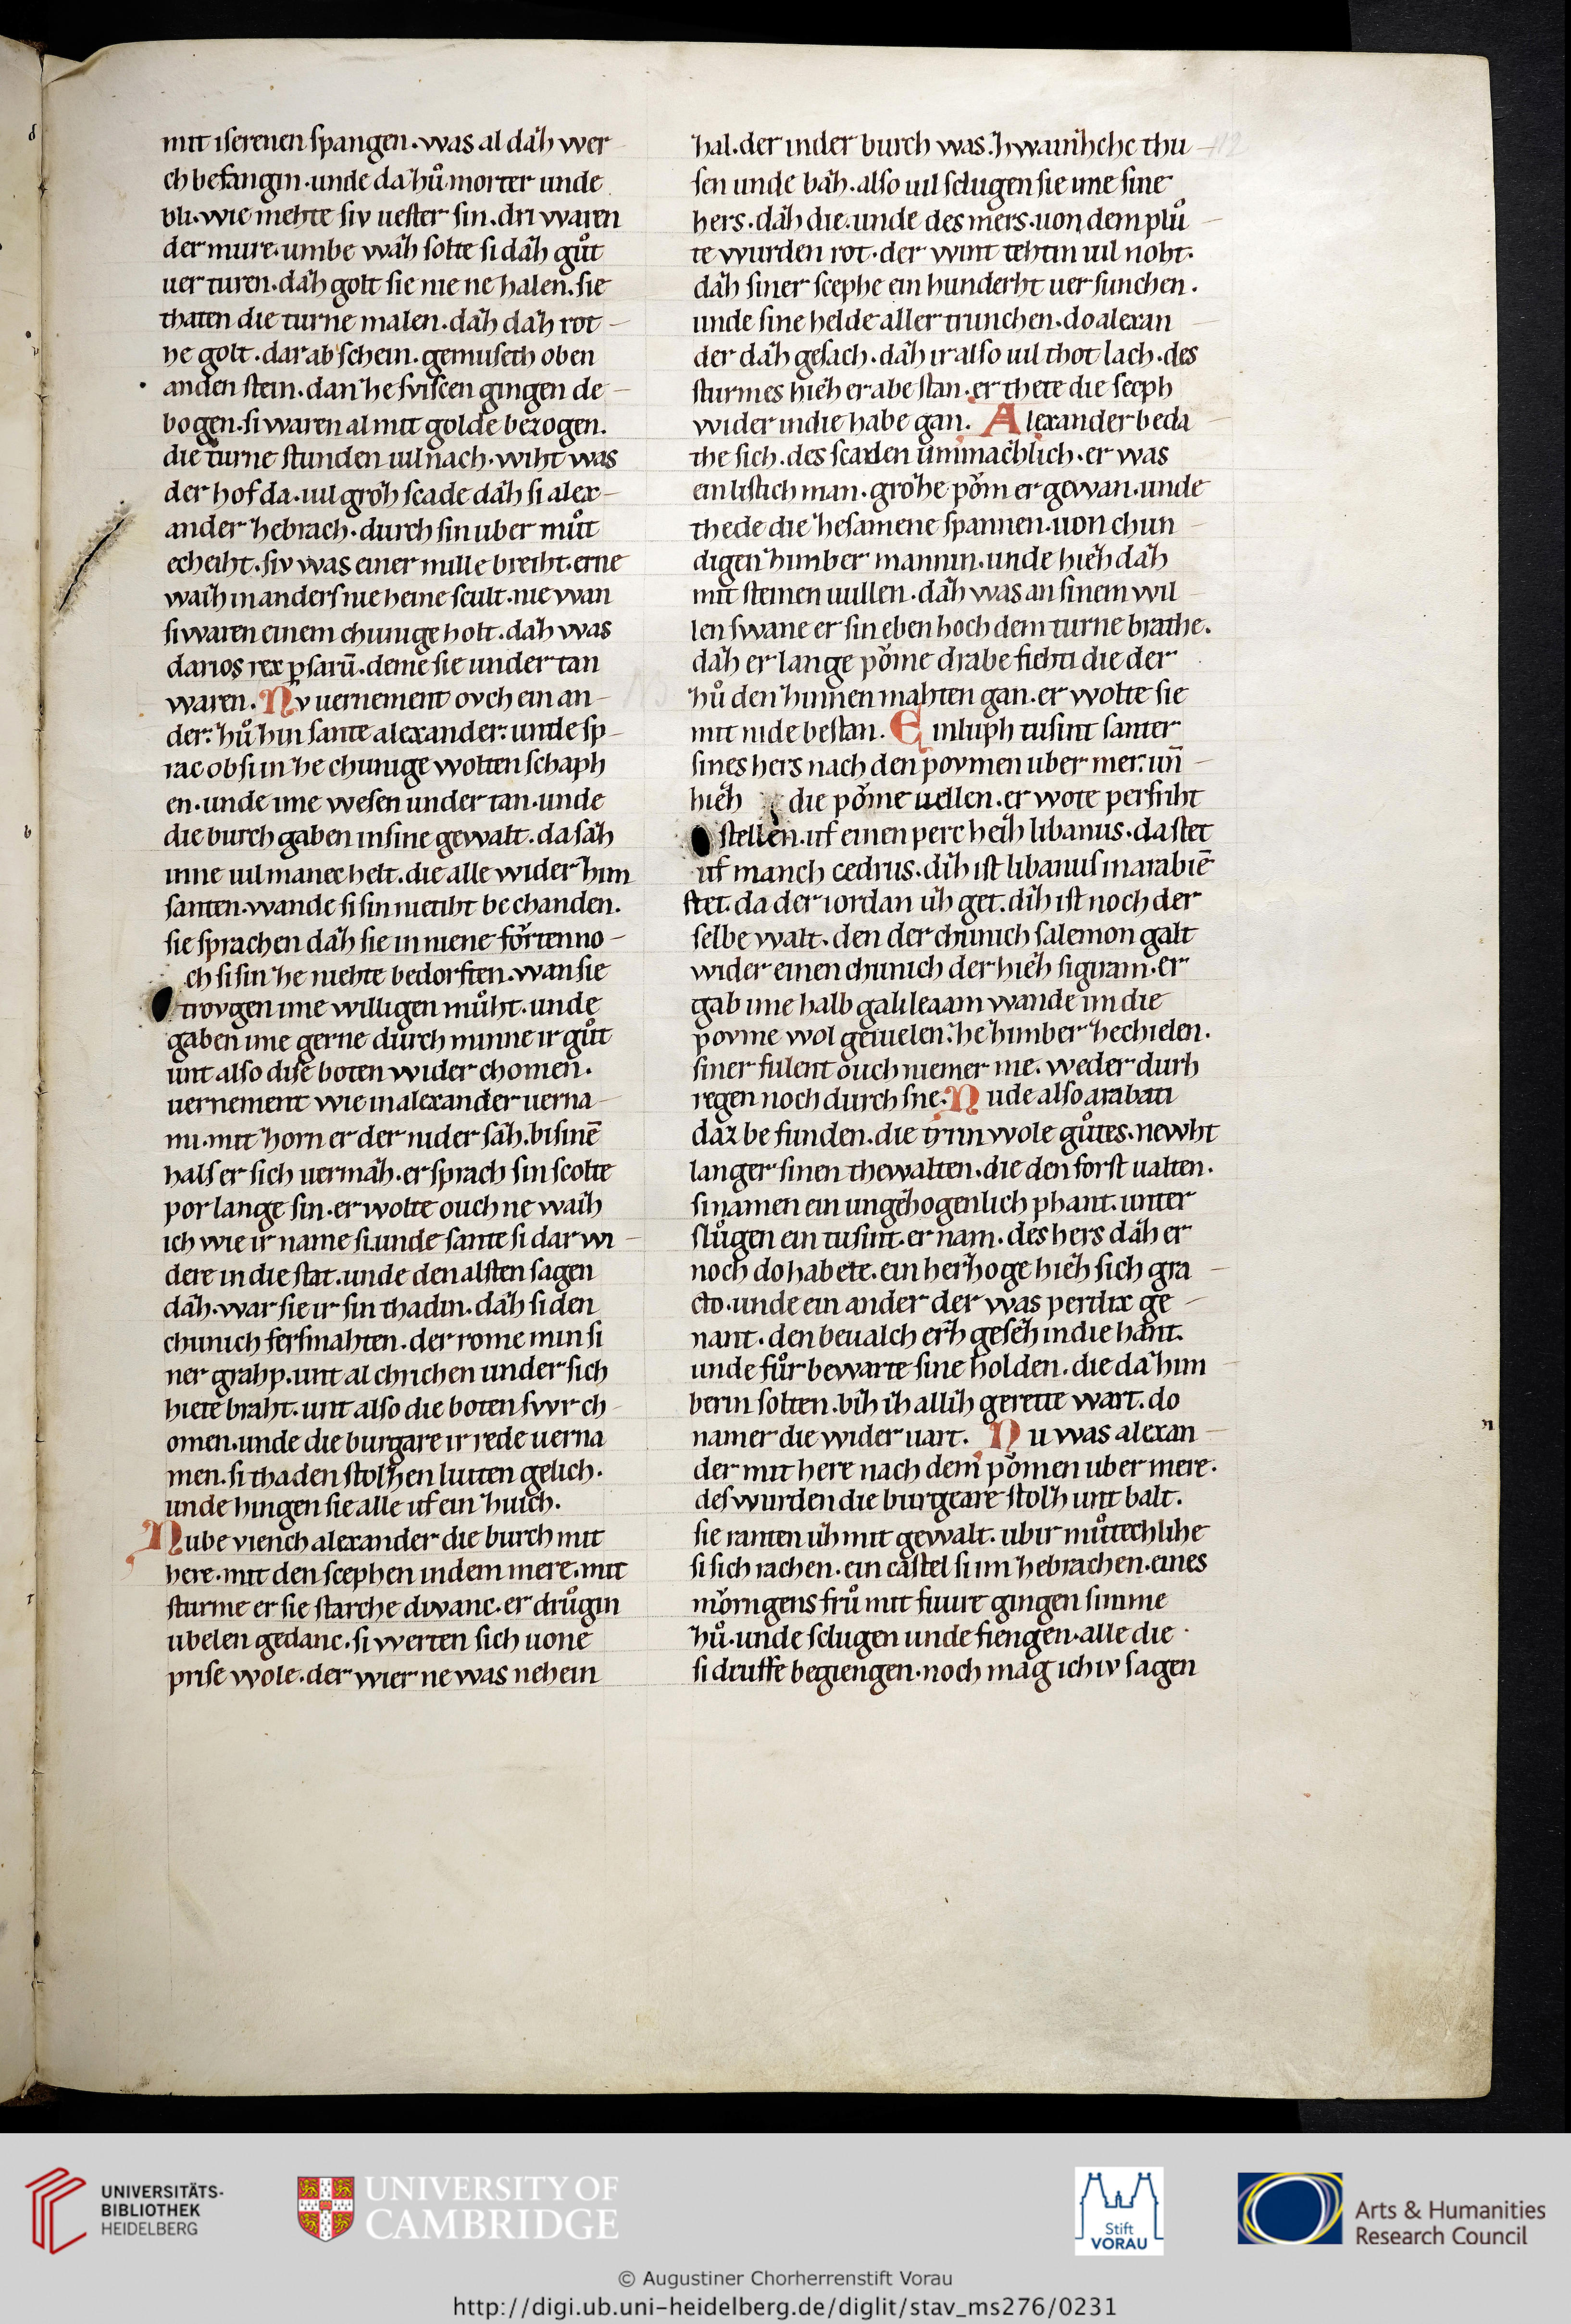 mit iſerenen ſpangen. was al dazh wer
ch befangin. unde da zhuͦ morter unde
bli. wie mehte ſiv ueſter ſin. dri waren
der mure. umbe wazh ſolte ſi dazh guͦt
uer turen. dazh golt ſie nie ne halen. ſie
thaten die turne malen. dazh dazh rot
he golt. dar ab ſchein. gemuſeth oben
anden ſtein. dan zhe ſviſcen gingen de
bogen. ſi waren al mit golde bezogen.
die turne ſtunden uil nach. wiht was
der hof da. uil grozh ſcade dazh ſi alex
ander zhebrach. durch ſin uber muͦt
echeiht. ſiv was einer mille breiht. erne
waizh in anders nie heine ſcult. nie wan
ſi waren einem chunige holt. dazh was
darios rex pſarū. deme ſie under tan
waren. Nv uernement ovch ein an
der. zhuͦ zhin ſante alexander. unde ſp
rac obſi in zhe chunige wolten ſchaph
en. unde ime weſen under tan. unde
die burch gaben in ſine gewalt. da ſazh
inne uil manec helt. die alle wider zhim
ſanten. wande ſi ſin nietiht be chanden.
ſie ſprachen dazh ſie in niene forten no
ch ſi ſin zhe niehte bedorften. wan ſie
trovgen ime willigen muͦht. unde
gaben ime gerne durch minne ir guͦt
unt alſo diſe boten wider chomen.
uernement wie in alexander uerna
m. mit zhorn er der nider ſazh. bi ſinē
hals er ſich uermazh. er ſprach ſin ſcolte
por lange ſin. er wolte ouch ne waizh
ich wie ir name ſi. unde ſante ſi dar wi
dere in die ſtat. unde den alſten ſagen
dazh. war ſie ir ſin thadin. dazh ſi den
chunich ferſmahten. der rome min ſi
ner grahp. unt al chrichen under ſich
hiete braht. unt alſo die boten ſvvr ch
omen. unde die burgare ir rede uerna
men. ſi thaden ſtolzhen luiten gelich.
unde hingen ſie alle uf ein zhuich.
Nube viench alexander die burch mit
here. mit den ſcephen in dem mere. mit
ſturme er ſie ſtarche dwanc. er druͦgin
ubelen gedanc. ſi werten ſich uone
priſe wole. der wier ne was nehein
zhal. der in der burch was. zhwainzhche thu
ſen unde bazh. alſo uil ſclugen ſie ime ſine
hers. dazh die. unde des mers. uon dem pluͦ
te wurden rot. der wint tehtin uil noht.
dazh ſiner ſcephe ein hunderht uer ſunchen.
unde ſine helde aller trunchen. do alexan
der dazh geſach. dazh ir alſo uil thot lach. des
ſturmes hiezh er abe ſtan. er thete die ſceph
wider in die habe gan. Alexander beda
the ſich. des ſcaden unmazhlich. er was
ein liſtich man. grozhe pom er gewan. unde
thede die zheſamene ſpannen. uon chun
digen zhimber mannin. unde hiezh dazh
mit ſteinen uullen. dazh was an ſinem wil
len ſwane er ſin eben hoch dem turne brathe.
dazh er lange pome drabe ſichti die der
zhuͦ den zhinnen mahten gan. er wolte ſie
mit nide beſtan. Einluph tuſint ſanter
ſines hers nach den poymen uber mer. uñ
hiezh die pome uellen. er wote perfriht
ſtellen. uf einen perc heizh libanus. da ſtet
uf manch cedrus. dizh iſt libanuſ in arabiē
ſtet. da der iordan uzh get. dizh iſt noch der
ſelbe walt. den der chunich ſalemon galt
wider einen chunich der hiezh ſigiram. er
gab ime halb galileaam wande im die
poyme wol geuielen. zhe zhimber zhechielen.
ſiner fulent ouch niemer me. weder durh
regen noch durch ſne. Nude alſo arabati
daz be funden. die tyrin wole guͦtes. newht
langer ſi nen thewalten. die den forſt ualten.
ſi namen ein ungezhogenlich phant. unter
ſluͦgen ein tuſint. er nam. des hers dazh er
noch do habete. ein herzhoge hiezh ſich gra
cto. unde ein ander der was perdix ge
nant. den beualch erzh geſezh in die hant.
unde fuͦr bewarte ſine holden. die da zhim
berin ſolten. bizh izh allizh gereite wart. do
namer die wider uart. Nu was alexan
der mit here nach dem pomen uber mere.
deſ wurden die burgeare ſtolzh unt balt.
ſie ranten uzh mit gewalt. ubir muͦtechlihe
ſi ſich rachen. ein caſtel ſi im zhebrachen. eines
morngens fruͦ mit fuure gingen ſimme
zhuͦ. unde ſclugen unde fiengen. alle die
ſi druffe begiengen. noch mag ich iv ſagen
UNIVERSITÄTS-
BIBLIOTHEK
HEIDELBERG
UNIVERSITY OF
CAMBRIDGE
Stift
VORAU
Arts & Humanities
Research Council
© Augustiner Chorherrenstift Vorau
http://digi.ub.uni-heidelberg.de/diglit/stav_ms276/0231